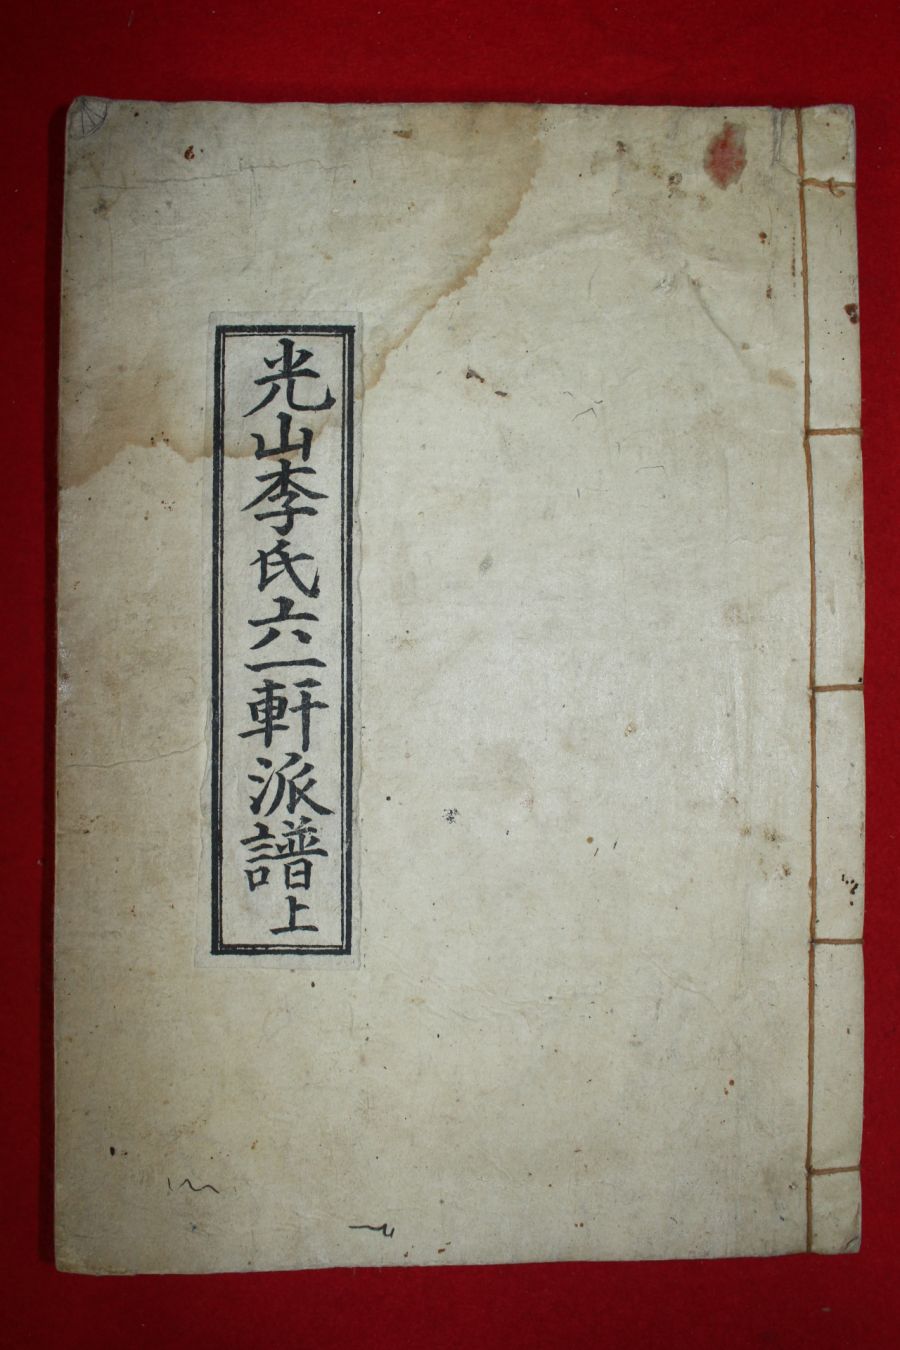 光山李氏六一軒派譜上